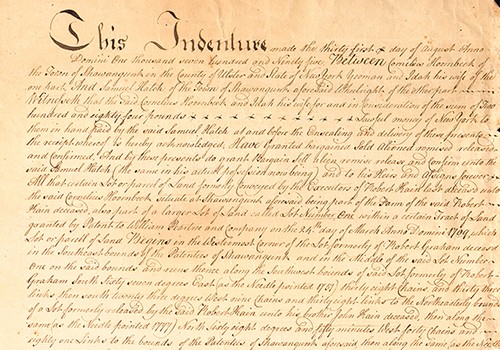 This Indenture made the thirty first day of August Anno
Domini One thousand seven hundred and Ninety five Between Cornelius Hornbeek of
the Town of Shawangunk in the County of Ulster and State of New York Yeoman and Idah his wife of the
one part, And Samuel Hatch of the Town of Shawangunk aforesaid Wheelright of the other part
Witnesseth that the said Cornelius Hornbeek and Idah his wife for and in Consideration of the sum of
hundred and eighty four pounds Lawful money of New York to
them in hand paid by the said Samuel Hatch at and before the Ensealing and delivery of these presents
the receipt whereof is hereby acknowledged, Have granted bargained sold aliened remised released
and Confirmed. And by these presents do grant Bargain sell alien remise release and Confirm unto the
said Samuel Hatch (the same in his actual possession now being) and to his Heirs and Assigns forever
All that certain Lot or parcel of Land formerly Conveyed by the Executors of Robert Hain deceased unto
the said Cornelius Hornbeek situate at Shawangunk aforesaid being part of the Farm of the said Robert
Hain deceased, also part of a larger Lot of Land called Lot Number One within a certain Tract of Land
granted by Patent to William and Company on the 24th day of March Anno Domini 1709, which
Lot or parcel of Land Begins in the Westermost Corner of the Lot formerly of Robert Graham
in the Southeast bounds of the Patentees of Shawangunk and in the Middle of the said Lot Number
One on the said bounds and runs thence along the Southwest bounds of said Lot formerly of Robert
Graham South Sixty seven degrees East (as the Needle pointed 1751) thirty eight Chains and thirty three
links then South twenty three degrees West nine Chains and thirty eight links to the Northeasterly bounds
of a Lot formerly released by the said Robert Hain unto his brother John Hain deceased, then along the
same (as the Needle pointed 1777) North sixty eight degrees and fifty minutes West forty Chains and
eighty one Links to the bounds of the Patentees of Shawangunk aforesaid then along the same as the